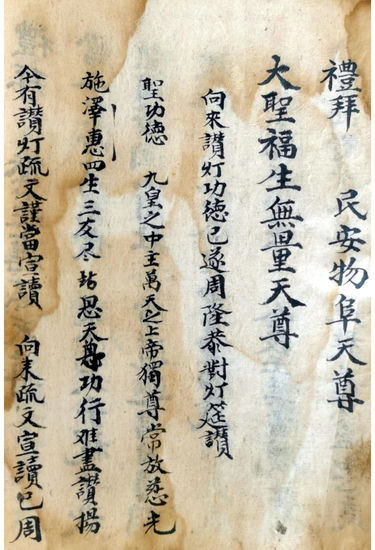 禮拜 民安物阜天尊
大聖福生無量天尊
向來讚灯功德已遂周隆恭對灯筵讚
聖功德 九皇之中主萬天之上帝獨尊常放慈光
施澤惠四生三友尽沾恩天尊功行难盡讚揚
今有讚灯疏文謹當宣讀 向来疏文宣讀已周